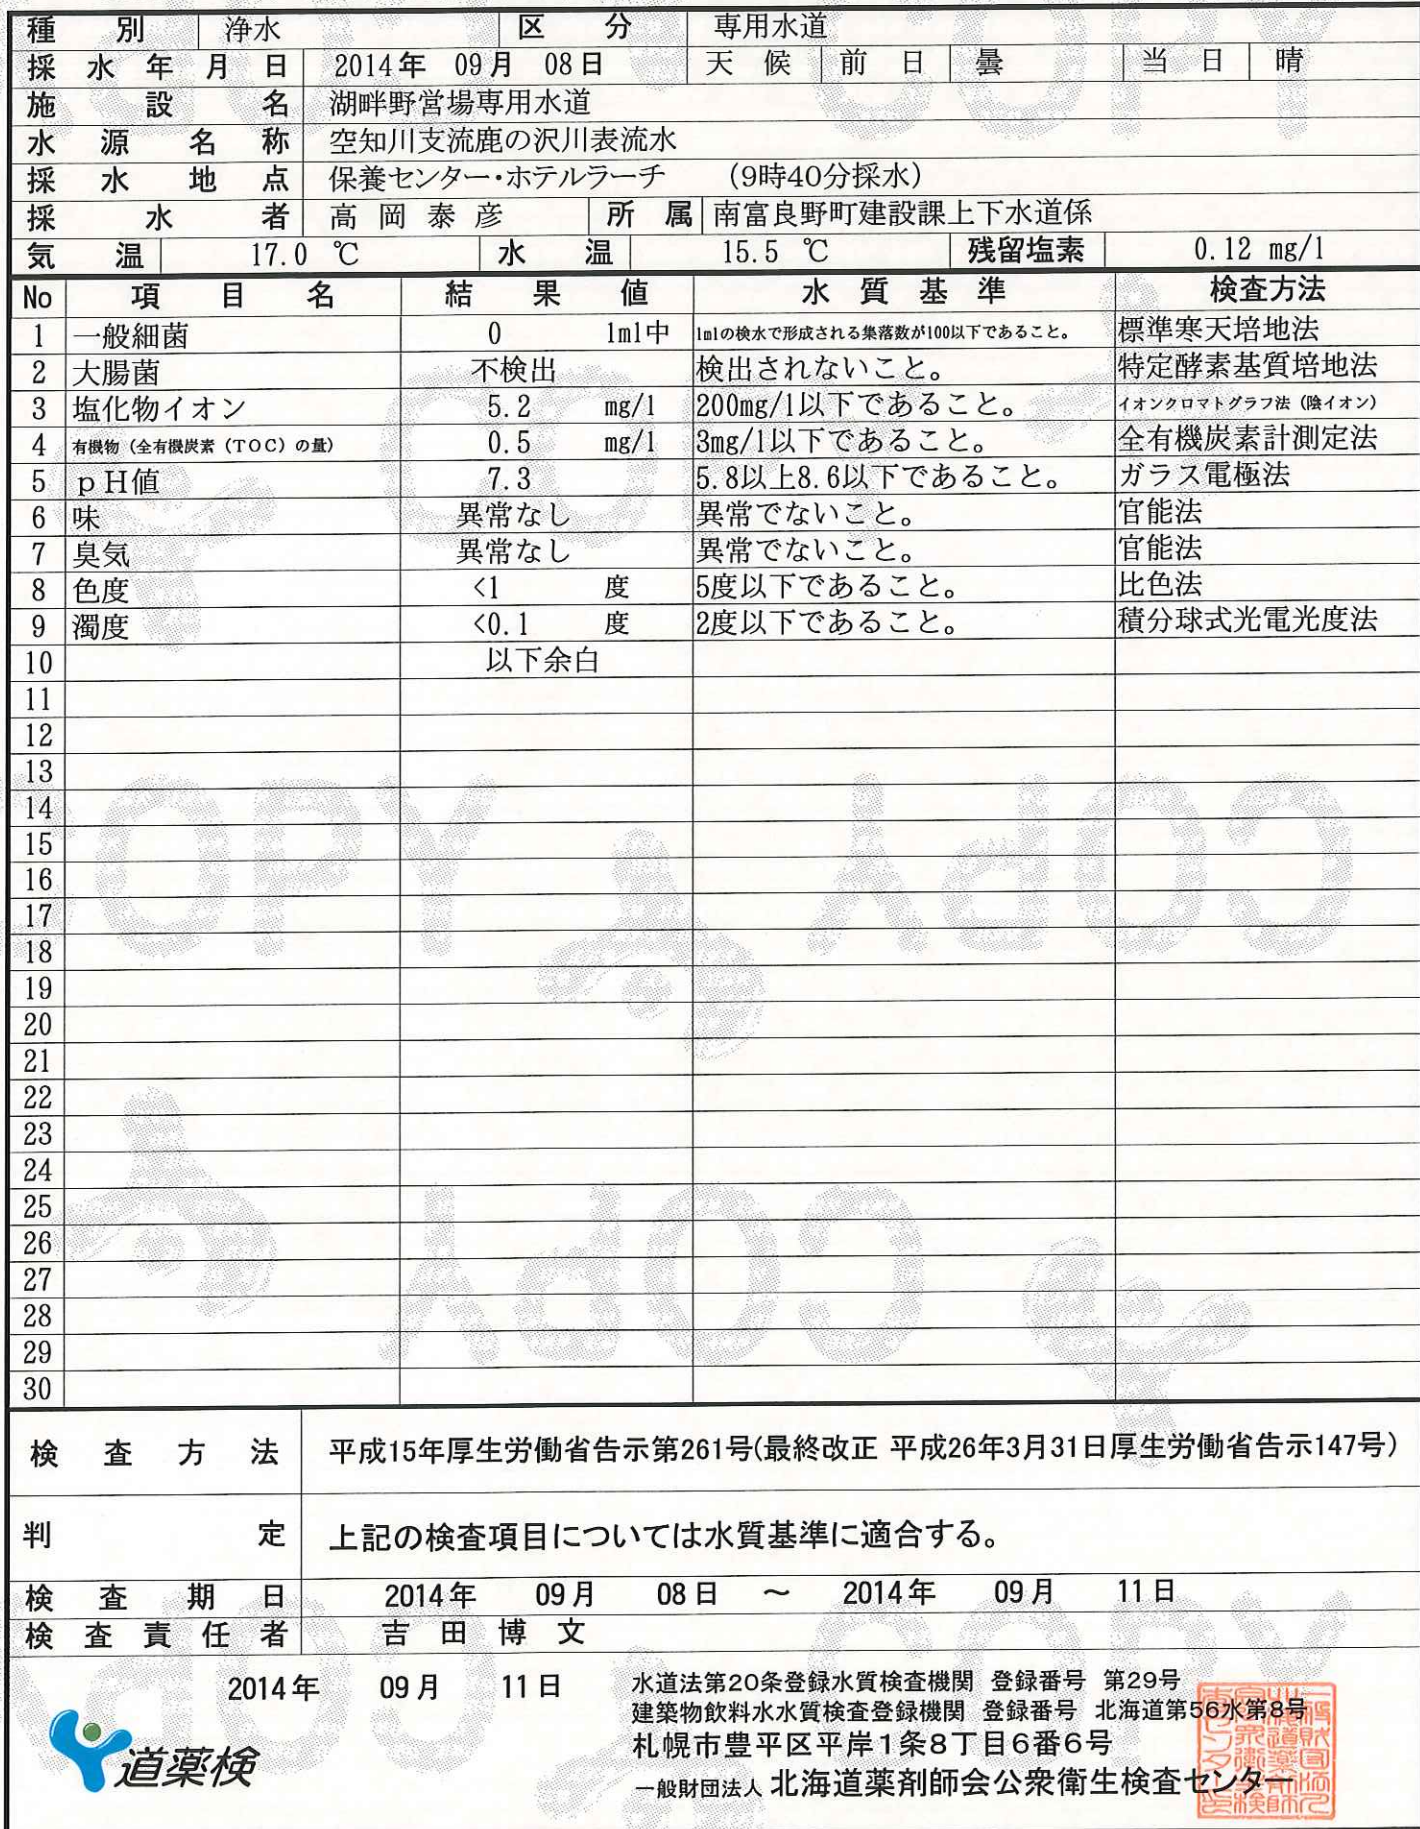 種別 浄水 区分 専用水道
採水年月日 2014年 09月 08日 天候 前日 曇 当日 晴
施設名 湖畔野営場専用水道
水源名称 空知川支流鹿の沢川表流水
採水地点 保養センター・ホテルラーチ (9時40分採水)
採水者 高岡泰彦 所属 南富良野町建設課上下水道係
気温 17.0 ℃ 水温 15.5 ℃ 残留塩素 0.12 mg/l
No 項目名 結果値 水質基準 検査方法
1 一般細菌 0 1ml中 1mlの検水で形成される集落数が100以下であること。 標準寒天培地法
2 大腸菌 不検出 検出されないこと。 特定酵素基質培地法
3 塩化物イオン 5.2 mg/l 200mg/l以下であること。 イオンクロマトグラフ法（陰イオン）
4 有機物（全有機炭素（TOC）の量） 0.5 mg/l 3mg/l以下であること。 全有機炭素計測定法
5 pH値 7.3 5.8以上8.6以下であること。 ガラス電極法
6 味 異常なし 異常でないこと。 官能法
7 臭気 異常なし 異常でないこと。 官能法
8 色度 <1 度 5度以下であること。 比色法
9 濁度 <0.1 度 2度以下であること。 積分球式光電光度法
10 以下余白
11
12
13
14
15
16
17
18
19
20
21
22
23
24
25
26
27
28
29
30
検査方法 平成15年厚生労働省告示第261号(最終改正 平成26年3月31日厚生労働省告示147号)
判定 上記の検査項目については水質基準に適合する。
検査期日 2014年 09月 08日 ～ 2014年 09月 11日
検査責任者 吉田博文
2014年 09月 11日
水道法第20条登録水質検査機関 登録番号 第29号
建築物飲料水水質検査登録機関 登録番号 北海道第56水第8号
札幌市豊平区平岸1条8丁目6番6号
一般財団法人 北海道薬剤師会公衆衛生検査センター
道薬検
COPY
COPY
COPY
COPY
COPY
COPY
COPY
COPY